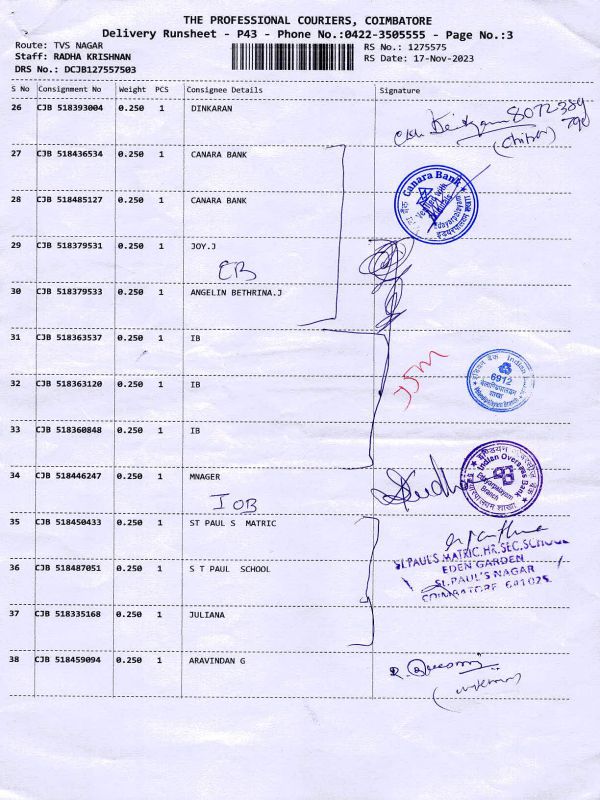 THE PROFESSIONAL COURIERS, COIMBATORE
Delivery Runsheet - P43 - Phone No.:0422-3505555 - Page No.:3
Route: TVS NAGAR
Staff: RADHA KRISHNAN
DRS No.: DCJB127557503
RS No.: 1275575
RS Date: 17-Nov-2023
S No Consignment No Weight PCS Consignee Details Signature
26 CJB 518393004 0.250 1 DINKARAN
8072389
790
27 CJB 518436534 0.250 1 CANARA BANK
28 CJB 518485127 0.250 1 CANARA BANK
Canara Bank
29 CJB 518379531 0.250 1 JOY.J
EB
30 CJB 518379533 0.250 1 ANGELIN BETHRINA.J
31 CJB 518363537 0.250 1 IB
32 CJB 518363120 0.250 1 IB
Indian
6912
33 CJB 518360848 0.250 1 IB
34 CJB 518446247 0.250 1 MNAGER
IOB
Indian Overseas Bank
Branch
35 CJB 518450433 0.250 1 ST PAUL S MATRIC
ST.PAUL'S.MATRIC.HR.SEC.SCHOOL
EDEN GARDEN
ST.PAUL'S NAGAR
COIMBATORE 641025
36 CJB 518487051 0.250 1 S T PAUL SCHOOL
37 CJB 518335168 0.250 1 JULIANA
38 CJB 518459094 0.250 1 ARAVINDAN G